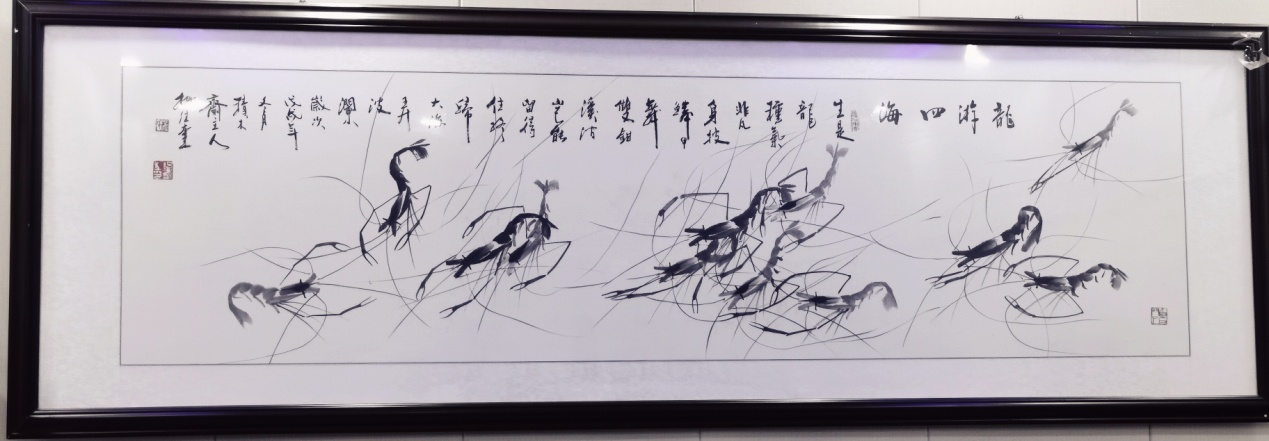 龍游四海
生是
龍
種氣
非凡
身披
鳞甲
舞
雙鉗
溪河
豈能
留得
住終
歸
大海
弄
波
瀾
歲次
戊戌年
月
積木
齋主人